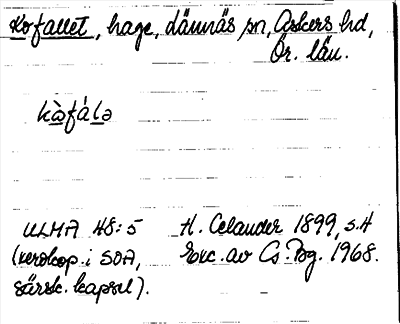 Kofallet, hage, Lännäs sn, Askers hd,
Ör. län.
kòfálə
ULMA 48:5 H. Celander 1899, s.4
(xerokop. i SOA, Exc. av Cs. Bg. 1968.
särsk. kapsel).